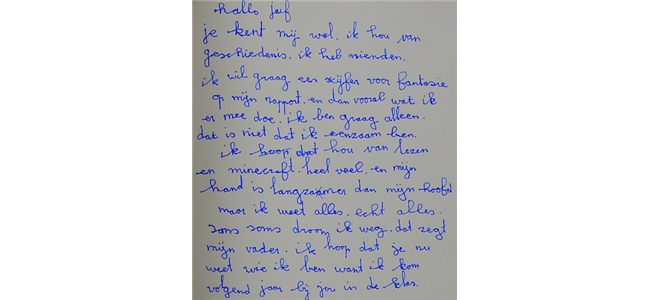 hallo juf
je kent mij wel. ik hou van
geschiedenis. ik heb vrienden.
ik wil graag een sijfer voor fantasie
op mijn rapport. en dan vooral wat ik
er mee doe. ik ben graag alleen.
dat is niet dat ik eenzaam ben.
ik hoop dat hou van lezen
en minecraft. heel veel. en mijn
hand is langzaamer dan mijn hoofd
maar ik weet alles. echt alles.
soms soms droom ik weg. dat zegt
mijn vader. ik hoop dat je nu
weet wie ik ben want ik kom
volgend jaar bij jou in de klas.